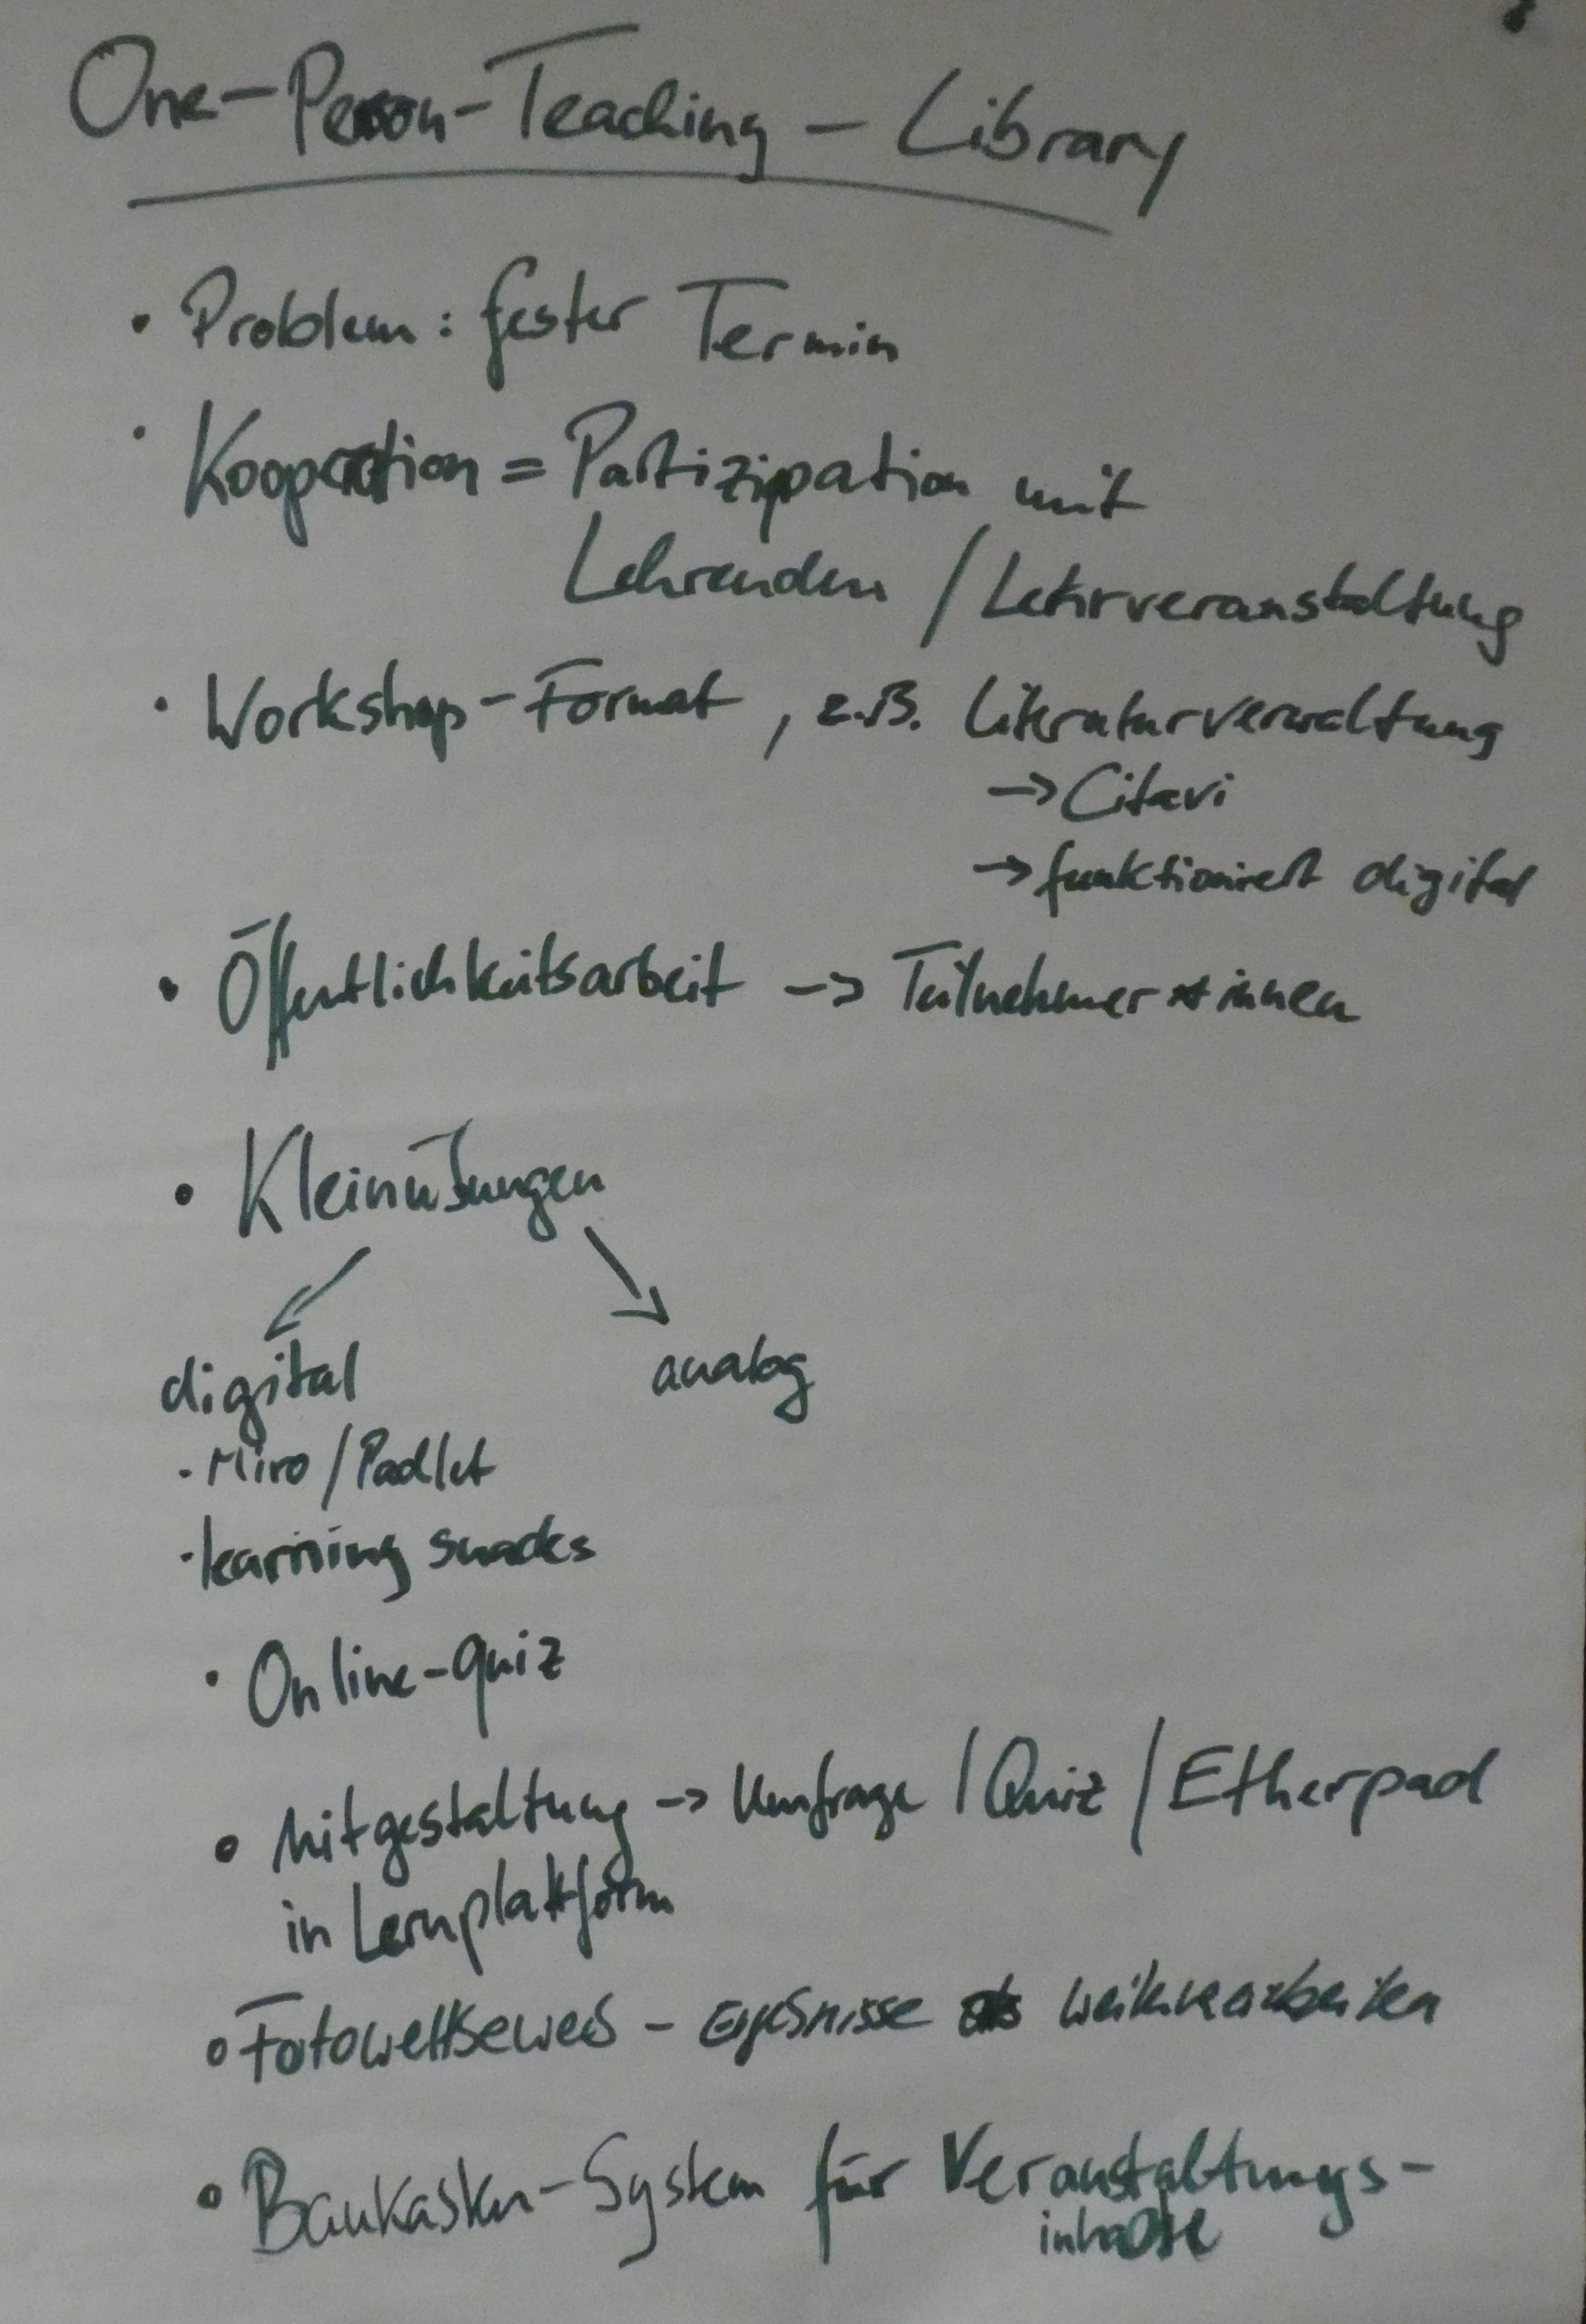 One-Person-Teaching-Library
• Problem: fester Termin
• Kooperation = Partizipation mit
Lehrenden / Lehrveranstaltung
• Workshop-Format, z.B. Literaturverwaltung
→ Citavi
→ funktioniert digital
• Öffentlichkeitsarbeit → Teilnehmer*innen
• Kleinübungen
digital analog
· Miro / Padlet
· learning snacks
• Online-quiz
• Mitgestaltung → Umfrage / Quiz / Etherpad
in Lernplattform
• Fotowettbewerb - Ergebnisse weiterarbeiten
• Baukasten-System für Veranstaltungs-
inhalte